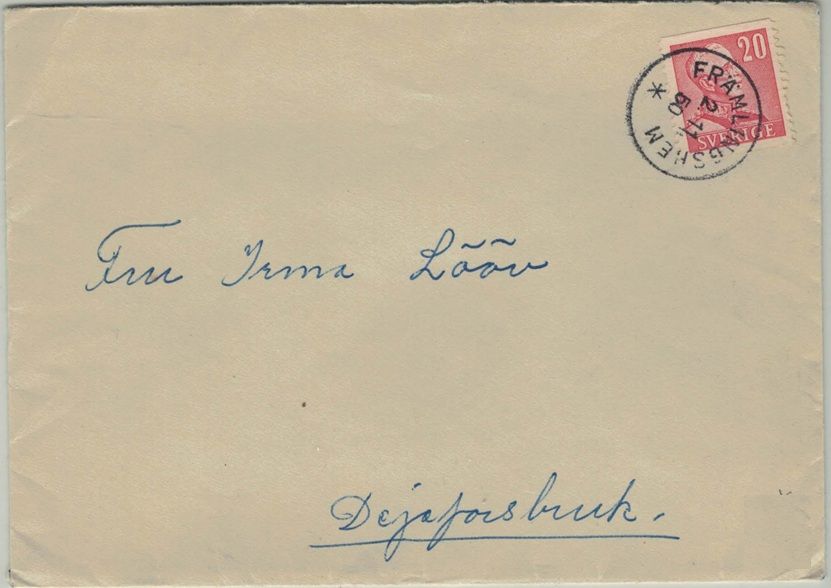 20
SVERIGE
FRÄMLINGSHEM
2 11
50
Fru Irma Lööv
Dejeforsbruk.